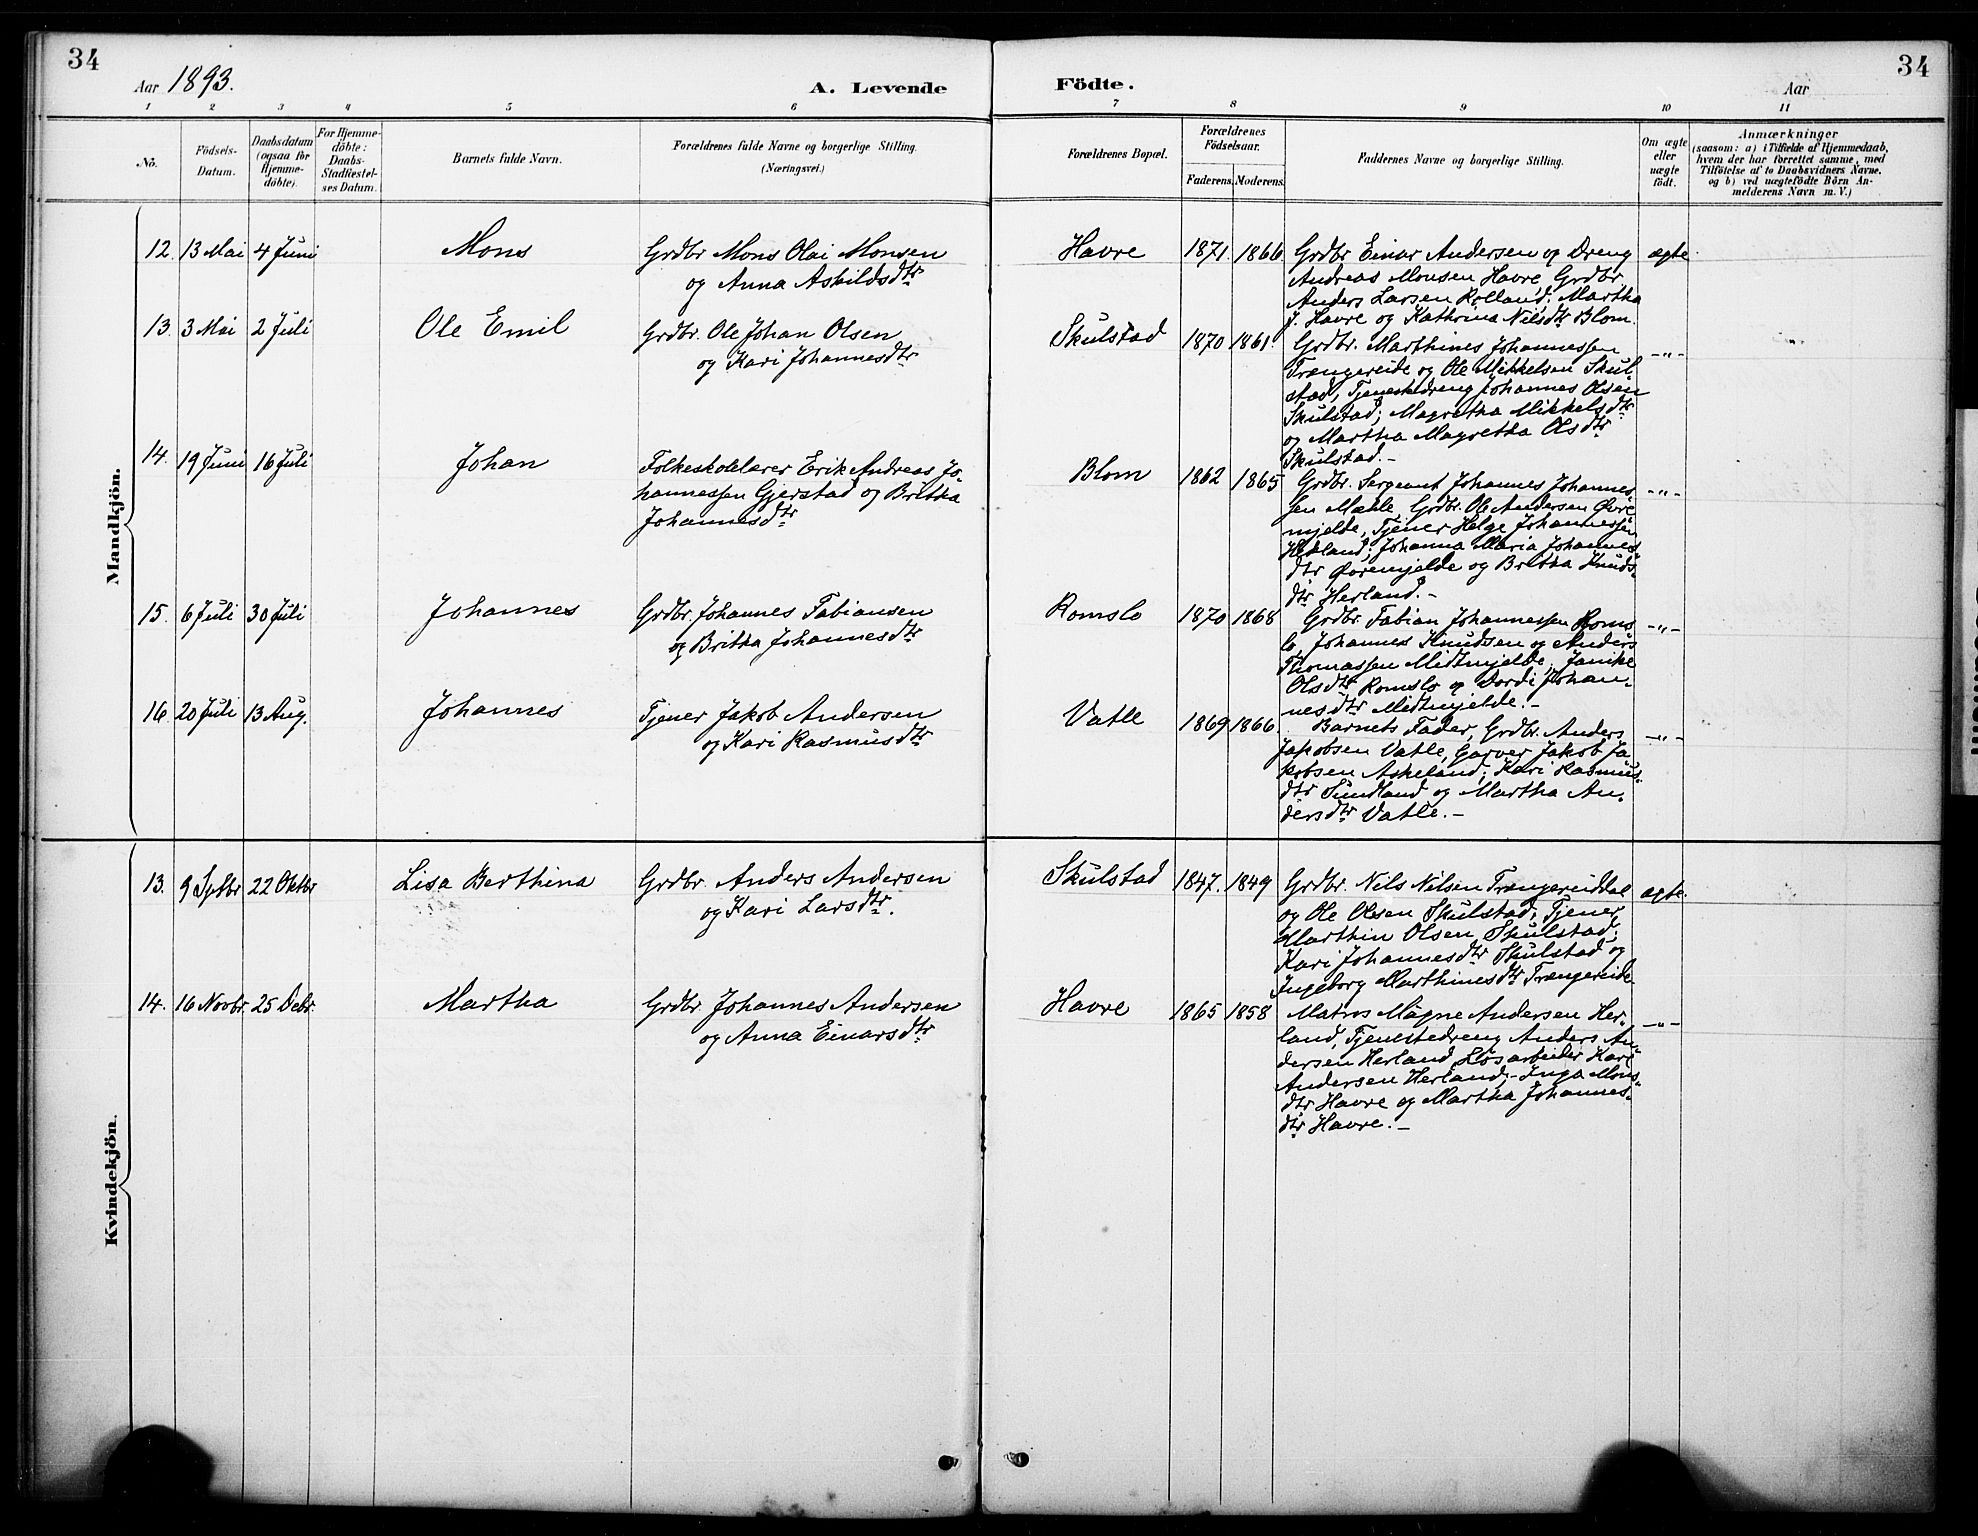 34
34
Aar 1893.
A. Levende
Födte.
Aar
1 2 3 4 5 6 7 8 9 10 11
No.
Födsels-
Datum.
Daabsdatum
(ogsaa for
Hjemme-
döbte).
For Hjemme-
döbte:
Daabs-
Stadfæstel-
ses Datum.
Barnets fulde Navn.
Forældrenes fulde Navne og borgerlige Stilling.
(Næringsvei.)
Forældrenes Bopæl.
Forældrenes
Födselsaar.
Faderens. Moderens.
Faddernes Navne og borgerlige Stilling.
Om ægte
eller
uægte
födt.
Anmærkninger
(saasom: a) i Tilfælde af Hjemmedaab,
hvem der har forrettet samme, med
Tilföielse af to Daabsvidners Navne,
og b) ved uægtefödte Börn An-
melderens Navn m. V.)
Mandkjön.
12. 13 Mai 4 Juni Mons
Grdbr Mons Olai Monsen
og Anna Askildsdtr
Havre 1871. 1866
Grdbr Einar Andersen og Dreng
Andreas Monsen Havre, Grdbr.
Anders Larsen Rolland; Martha
J. Havre og Kathrina Nilsdtr Blom.
ægte
13. 3 Mai 2 Juli Ole Emil
Grdbr. Ole Johan Olsen
og Kari Johannesdtr
Skulstad 1870 1861.
Grdbr. Marthines Johannessen
Trængereide og Ole Mikkelsen Skul-
stad, Tjenestedreng Johannes Olsen
Skulstad; Magretha Mikkelsdtr
og Martha Magretha Olsdtr
Skulstad.-
-"-
14. 19 Juni 16 Juli Johan
Folkeskolelærer Erik Andreas Jo-
hannessen Gjerstad og Britha
Johannesdtr
Blom 1862 1865
Grdbr. Sergeant Johannes Johannes-
sen Mæhle, Grdbr. Ole Andersen Øvre
mjelde, Tjener Helge Johannessen
Herland; Johanna Maria Johannes-
dtr Øvremjelde og Britha Knuds-
dtr Herland.-
-"-
15. 6 Juli 30 Juli Johannes
Grdbr. Johannes Fabiansen
og Britha Johannesdtr
Romslo 1870 1868
Grdbr. Fabian Johannessen Roms-
lo, Johannes Knudsen og Anders
Thomassen Midtmjelde; Janike
Olsdtr Romslo og Dordi Johan-
nesdtr Midtmjelde.-
-"-
16. 20 Juli 13 Aug. Johannes
Tjener Jakob Andersen
og Kari Rasmusdtr
Vatle 1869 1866.
Barnets Fader, Grdbr. Anders
Jakobsen Vatle, Garver Jakob Ja-
kobsen Askeland; Kari Rasmus-
dtr Sundland og Martha An-
dersdtr Vatle.-
-"-
Kvindekjön.
13. 9 Septbr 22 Oktbr Lisa Berthina
Grdbr. Anders Andersen
og Kari Larsdtr.
Skulstad 1847. 1849
Grdbr. Nils Nilsen Trængereiddal
og Ole Olsen Skulstad; Tjener
Marthin Olsen Skulstad;
Kari Johannesdtr Skulstad og
Ingeborg Marthinesdtr Trængereide
ægte.
14. 16 Novbr. 25 Debr. Martha
Grdbr. Johannes Andersen
og Anna Einarsdtr
Havre 1865 1858
Matros Magne Andersen Her-
land, Tjenestedreng Anders An-
dersen Herland, Løsarbeider Kari
Andersen Herland;- Inga Mons-
dtr Havre og Martha Johannes-
dtr Havre.-
-"-